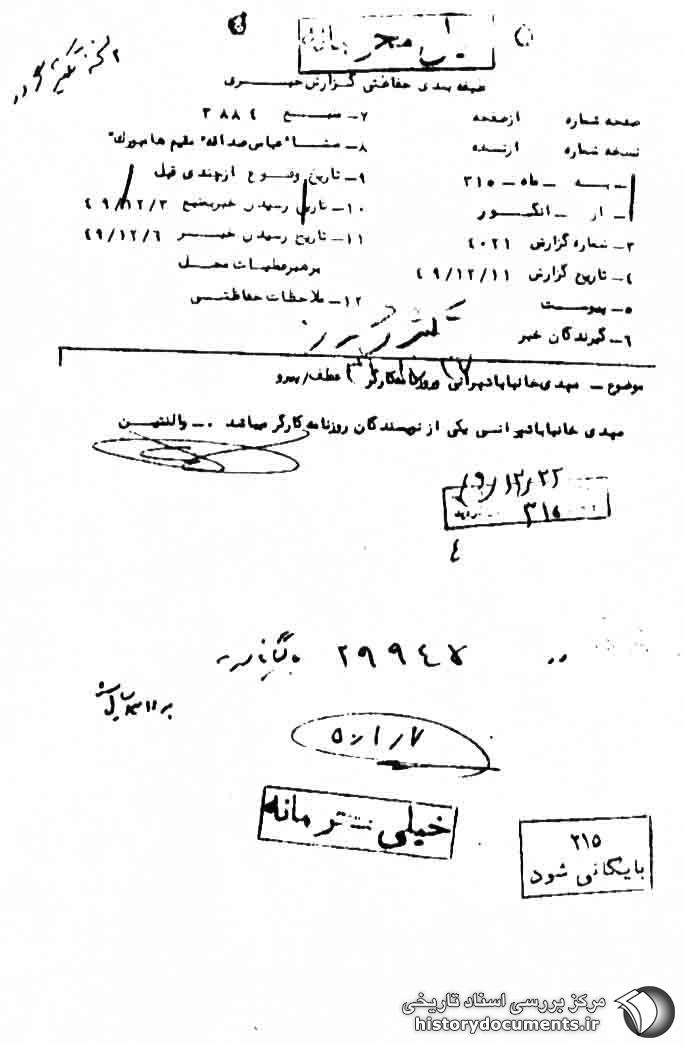 خیلی محرمانه
طبقه بندی حفاظتی گزارش خبری
صفحه شماره از صفحه
نسخه شماره از نسخه
به - ماه - ۳۱۵
از - انگسور
۳- شماره گزارش ۴۰۲۱
۴- تاریخ گزارش ۴۹/۱۲/۱۱
۵- پیوست
۶- گیرندگان خبر
۷- منبع ۳۸۸۴
۸- منشا "عباس صداقه" مقیم هامبورگ"
۹- تاریخ وقوع از چندی قبل
۱۰- تاریخ رسیدن خبر بمنبع ۴۹/۱۲/۳
۱۱- تاریخ رسیدن خبر ۴۹/۱۲/۶
برهبر عملیات محل
۱۲- ملاحظات حفاظتی
موضوع - مهدی خانبابا تهرانی و روزنامه کارگر عطف/پیرو
مهدی خانبابا تهرانی یکی از نویسندگان روزنامه کارگر میباشد . - والنتین
۴۹/۱۲/۲۲
۳۱۵
۴
۲۹۹۴۷
۵۰/۱/۷
خیلی محرمانه
۲۱۵
بایگانی شود
مرکز بررسی اسناد تاریخی
historydocuments.ir